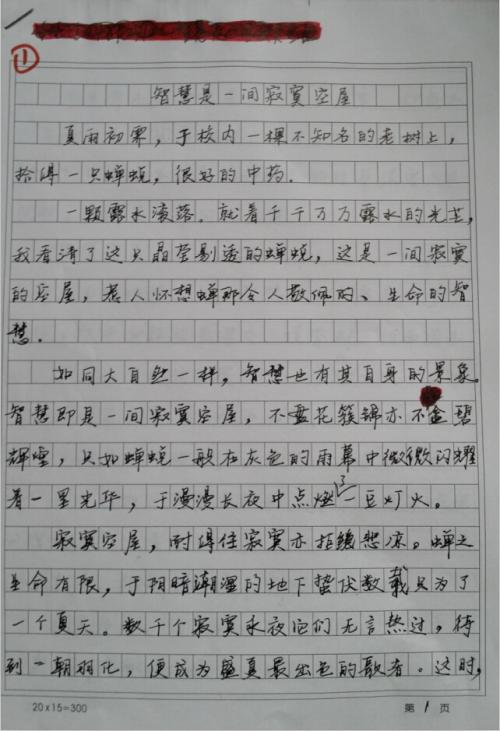 ①
智慧是一间寂寞空屋
夏雨初霁，于校内一棵不知名的老树上，
拾得一只蝉蜕，很好的中药.
一颗露水滚落.就着千千万万露水的光芒，
我看清了这只晶莹剔透的蝉蜕，这是一间寂寞
的空屋，惹人怀想蝉那令人敬佩的、生命的智
慧.
如同大自然一样，智慧也有其自身的景象.
智慧即是一间寂寞空屋，不 花簇锦亦不金碧
辉煌，只如蝉蜕一般在灰色的雨幕中微微闪耀
着一星光华，于漫漫长夜中点燃了一豆灯火。
寂寞空屋，耐得住寂寞亦拒绝悲凉。蝉之
生命有限，于阴暗潮湿的地下蛰伏数载只为了
一个夏天。数千个寂寞永夜它们无言熬过，待
到一朝羽化，便成为盛夏最出色的歌者.这时，
20×15=300
第1页